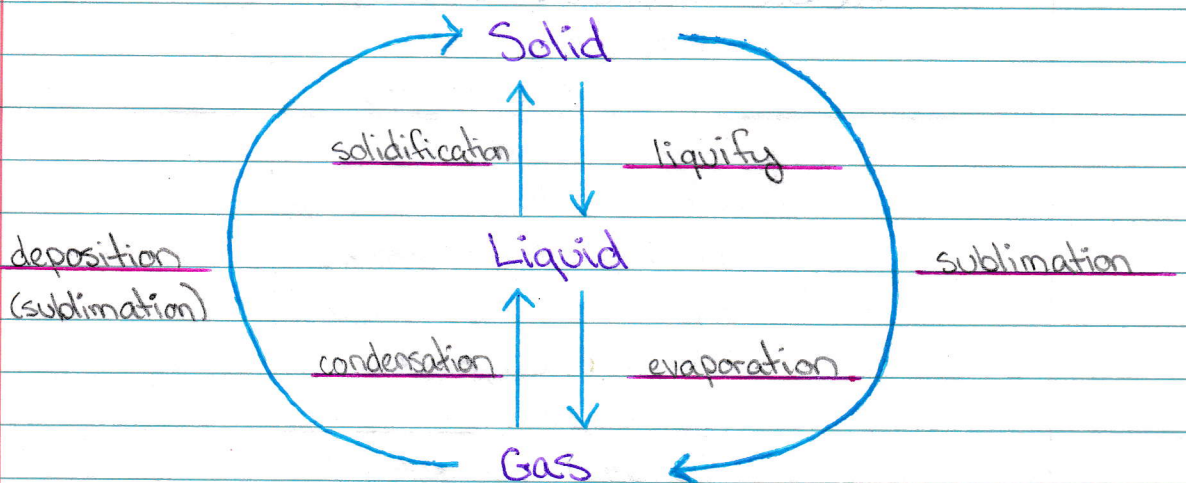 Solid
solidification
liquify
Liquid
deposition
(sublimation)
sublimation
condensation
evaporation
Gas